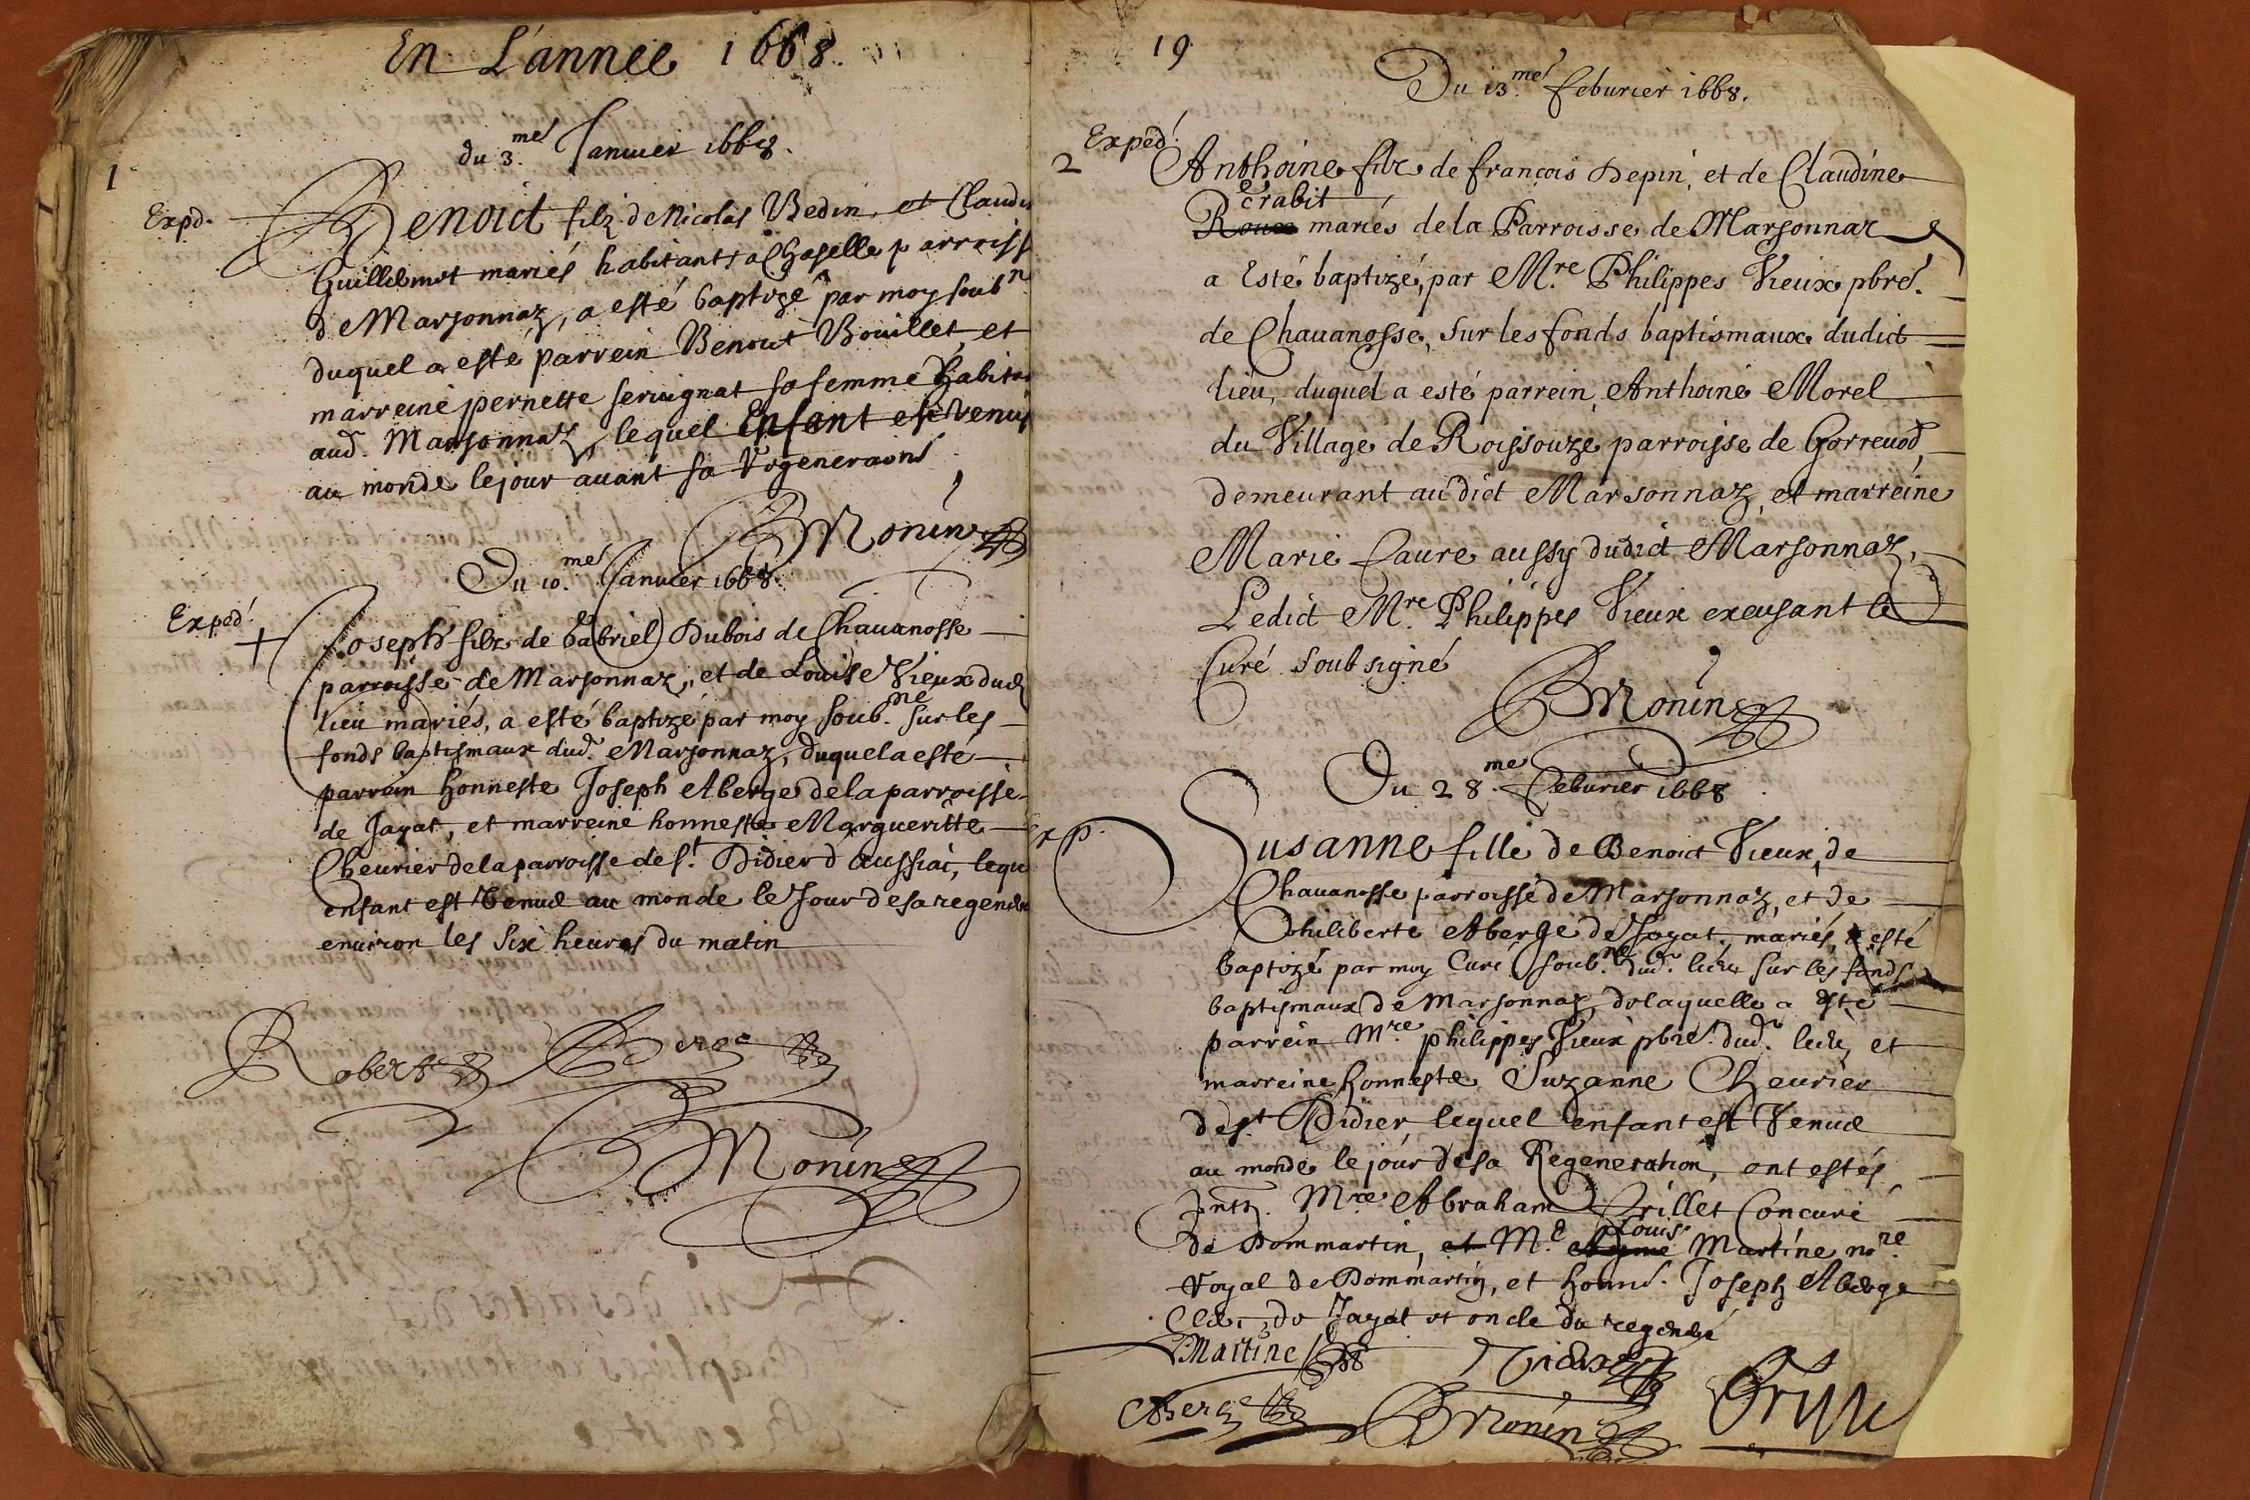 En L'annee 1668.
du 3.me Januier 1668.
1
Expd. Benoict filz de Nicolas Vedin, et Claudi
Guillemot mariés habitants a Chaselle parroiss
de Marsonnaz, a esté baptizé par moy soub.ne
duquel a esté parrein Benoict Bouillet, et
marreine pernette seruignat sa femme habita
aud. Marsonnaz, lequel Enfant est venu
au monde le jour auant sa
BMonin
Du 10.me Januier 1668.
Exped. Joseph filz de Gabriel Dubois de Chauanosse
parroisse de Marsonnaz, et de Louise Vieux dud.
lieu mariés, a esté baptizé par moy soub.ne sur les
fonds baptismaux dud. Marsonnaz, duquel a esté
parrein honneste Joseph Aberge de la parroisse
de Jayat, et marreine honneste Margueritte
Cheurier de la parroisse de St. Didier d'aussiat, lequ
enfant est Venue au monde le Jour de sa regener
enuiron les six heures du matin
Robert Aberge
BMonin
19
Du 13.me feburier 1668.
Exped.
2 Anthoine filz de françois Depin, et de Claudine
Crabit
Roux mariés de la Parroisse de Marsonnaz
a Esté baptizé, par M.re Philippes Vieux pbre.
de Chauanosse, sur les fonds baptismaux dudict
lieu, duquel a esté parrein, Anthoine Morel
du Village de Roissouze parroisse de Gorreuod,
demeurant audict Marsonnaz, et marreine
Marie faure aussy dudict Marsonnaz,
Ledict M.re Philippes Vieux excusant le
Curé soubsigné
BMonin
Du 28.me feburier 1668
Exp. Susanne fille de Benoict Vieux, de
Chauanosse parroisse de Marsonnaz, et de
Philiberte Aberge de Jayat, mariés, a esté
baptizé par moy Curé soub.né dud. lieu sur les fonds
baptismaux de Marsonnaz, de laquelle a esté
parrein M.re philippes Vieux pbre. dud. lieu, et
marreine honneste Suzanne Cheurier
de St. Didier lequel enfant est Venue
au monde le jour de sa Regeneration, ont estés
pntz. M.re Abraham Frillet Concuré
Louis
de Dommartin, et M.e Martine no.re
Royal de Dommartin, et honn. Joseph Aberge
Clerc de Jayat et oncle du regeneré
Martine Vieux
Aberge BMonin Frillet